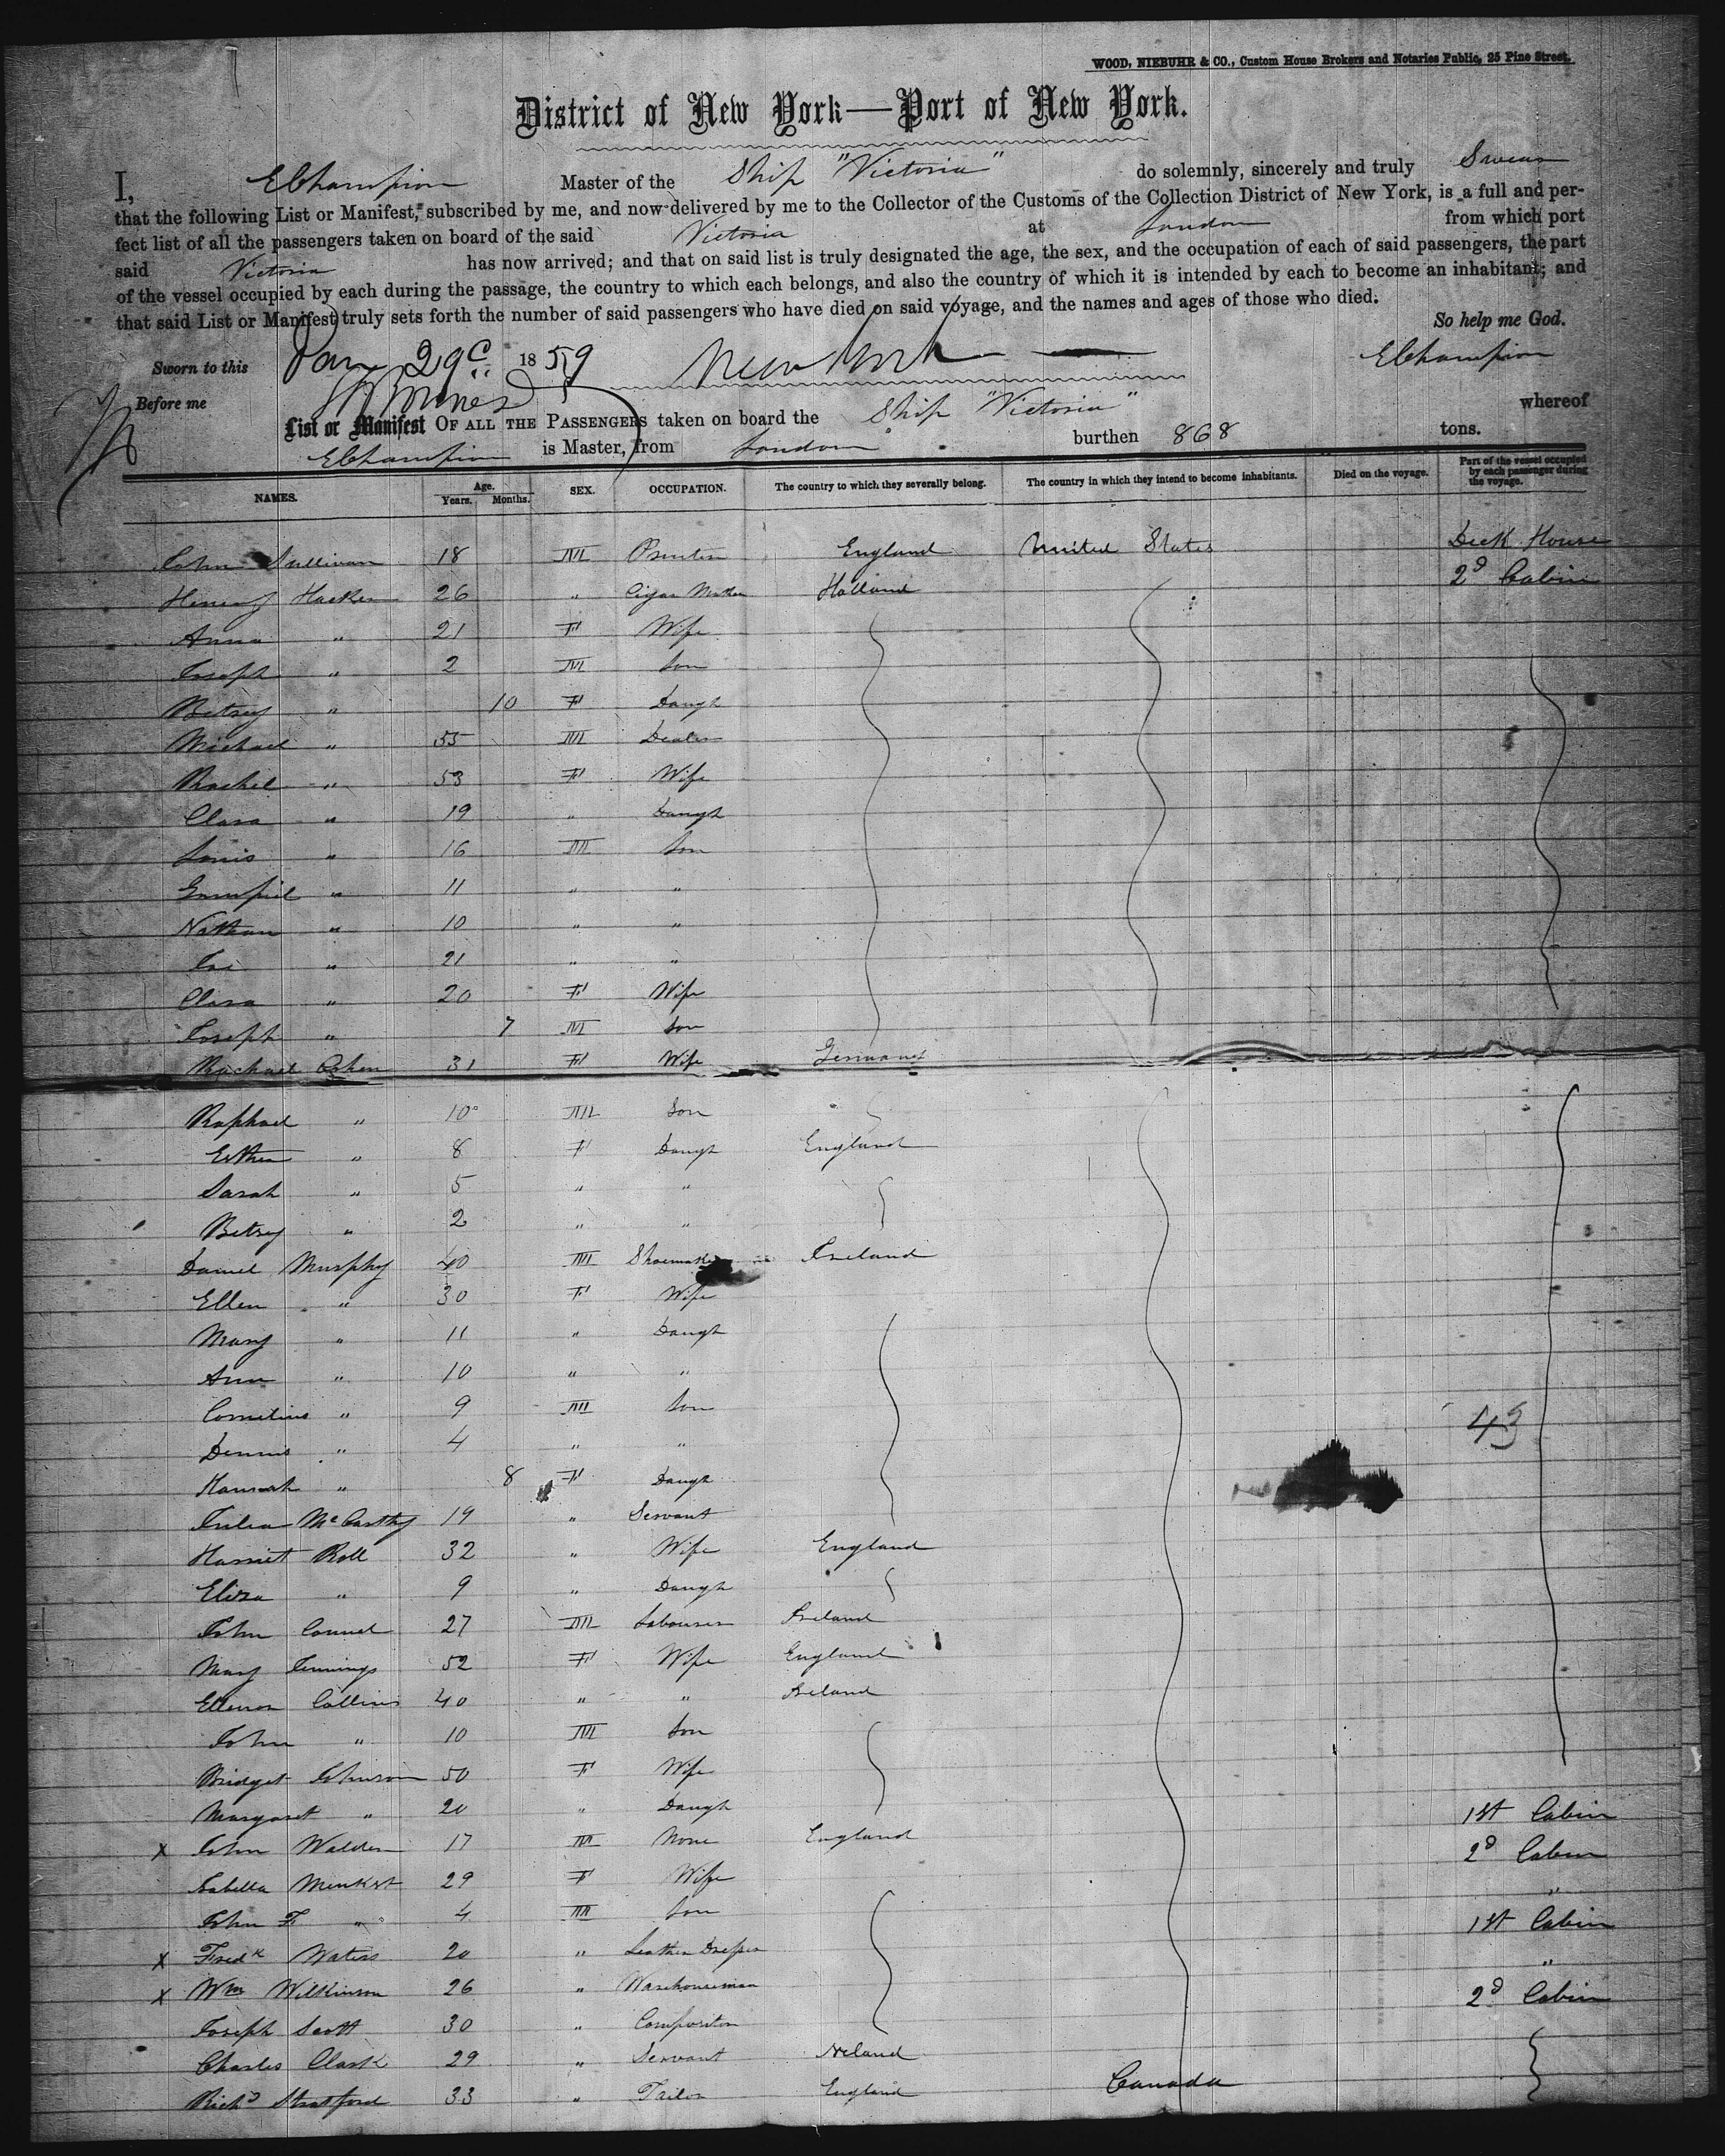 WOOD, NIEBUHR & CO., Custom House Brokers and Notaries Public, 25 Pine Street.
District of New York—Port of New York.
I, E Champion Master of the Ship "Victoria" do solemnly, sincerely and truly Swear
that the following List or Manifest, subscribed by me, and now delivered by me to the Collector of the Customs of the Collection District of New York, is a full and per-
fect list of all the passengers taken on board of the said Victoria at London from which port
said Victoria has now arrived; and that on said list is truly designated the age, the sex, and the occupation of each of said passengers, the part
of the vessel occupied by each during the passage, the country to which each belongs, and also the country of which it is intended by each to become an inhabitant; and
that said List or Manifest truly sets forth the number of said passengers who have died on said voyage, and the names and ages of those who died.
So help me God.
Sworn to this Jany 29 1859 New York E Champion
Before me
List or Manifest OF ALL THE PASSENGERS taken on board the Ship "Victoria" whereof
E Champion is Master, from London burthen 868 tons.
NAMES. Age. Years. Months. SEX. OCCUPATION. The country to which they severally belong. The country in which they intend to become inhabitants. Died on the voyage. Part of the vessel occupied by each passenger during the voyage.
John Sullivan 18 M England United States Deck House
Henery Hacker 26 " Cigar Maker Holland 2d Cabin
Anna " 21 F Wife
Joseph " 2 M Son
Betsey " 10 F Daugh
Michael " 55 M Dealer
Rachel " 53 F Wife
Clara " 19 " Daugh
Louis " 16 M Son
" 11 " "
Nathan " 10 " "
" 21 " "
Clara " 20 F Wife
Joseph " 7 M Son
Rachael Cohen 31 F Wife Germany
Raphael " 10 M Son
Esther " 8 F Daugh England
Sarah " 5 " "
Betsey " 2 " "
Daniel Murphy 40 M Shoemaker Ireland
Ellen " 30 F Wife
Mary " 11 " Daugh
Ann " 10 " "
Cornelius " 9 M Son
Dennis " 4 " "
43
Hannah " 8 F Daugh
Julia McCarthy 19 " Servant
Harriet Roll 32 " Wife England
Eliza " 9 " Daugh
John Connel 27 M Labourer Ireland
Mary Jennings 52 F Wife England
Ellenor Collins 40 " " Ireland
John " 10 M Son
Bridget Johnson 50 F Wife
Margaret " 20 " Daugh
x John Walden 17 M None England 1st Cabin
Isabella 29 F Wife 2d Cabin
John F " 4 M Son "
x Fredk Waters 20 " Leather Dresser 1st Cabin
x Wm Wilkinson 26 " Warehouseman "
Joseph Scott 30 " Compositor 2d Cabin
Charles Clark 29 " Servant Ireland
Richd Stratford 33 " Tailor England Canada